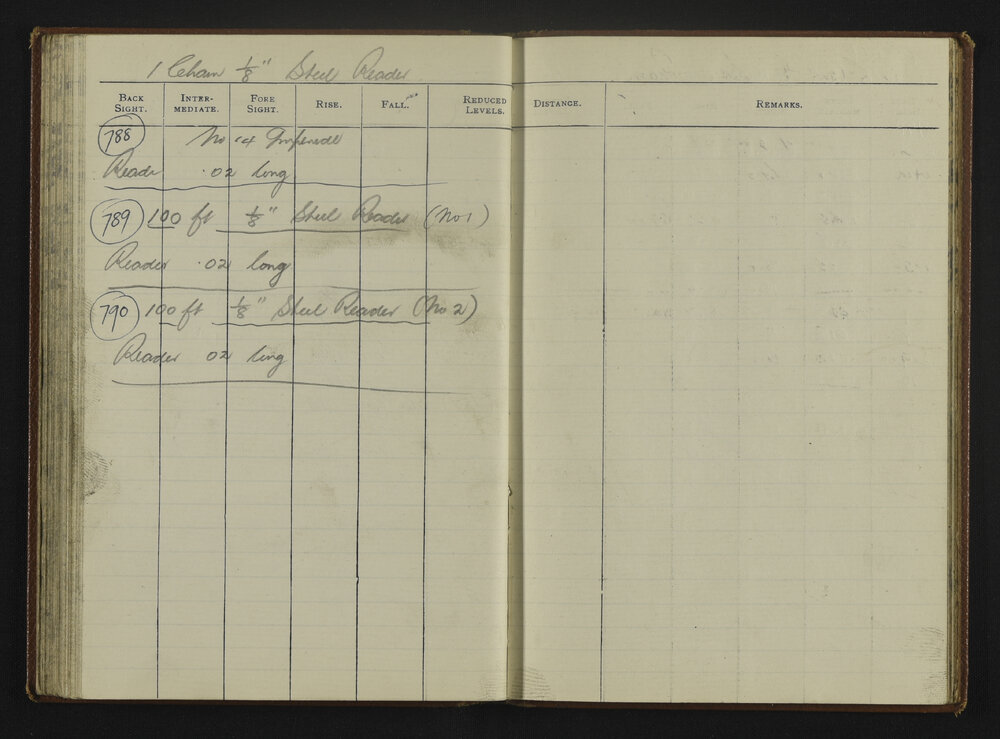 1 Chain 1/8" Steel Reader
BACK SIGHT. INTER-MEDIATE. FORE SIGHT. RISE. FALL. REDUCED LEVELS. DISTANCE. REMARKS.
788 No 14
Reader .02 long
789 100 ft 1/8" Steel Reader (No 1)
Reader .02 long
790 100 ft 1/8" Steel Reader (No 2)
Reader 02 long